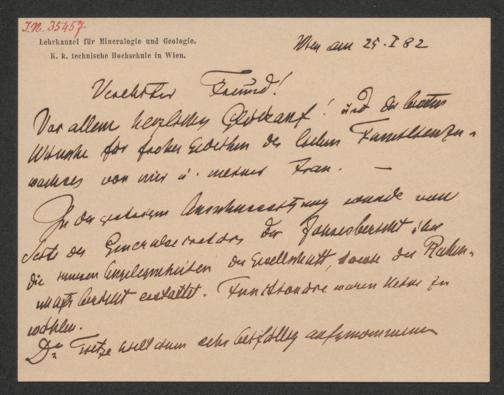 I.N. 35457
Lehrkanzel für Mineralogie und Geologie.
K. k. technische Hochschule in Wien.
Wien am 25. I 82
Verehrter Freund!
Vor allem herzliches Glückauf! und die besten
Wünsche für frohes Gedeihen des lieben Familienzu-
wachses von mir u. meiner Frau. —
In der gestrigen Ausschusssitzung wurde von
Seite des Generalsecretärs der Jahresbericht über
die inneren Angelegenheiten der Gesellschaft, sowie der Rechen-
schaftsbericht erstattet. Functionäre waren keine zu
wählen.
Dr. Tietze will nun sehr beifällig aufgenommenen